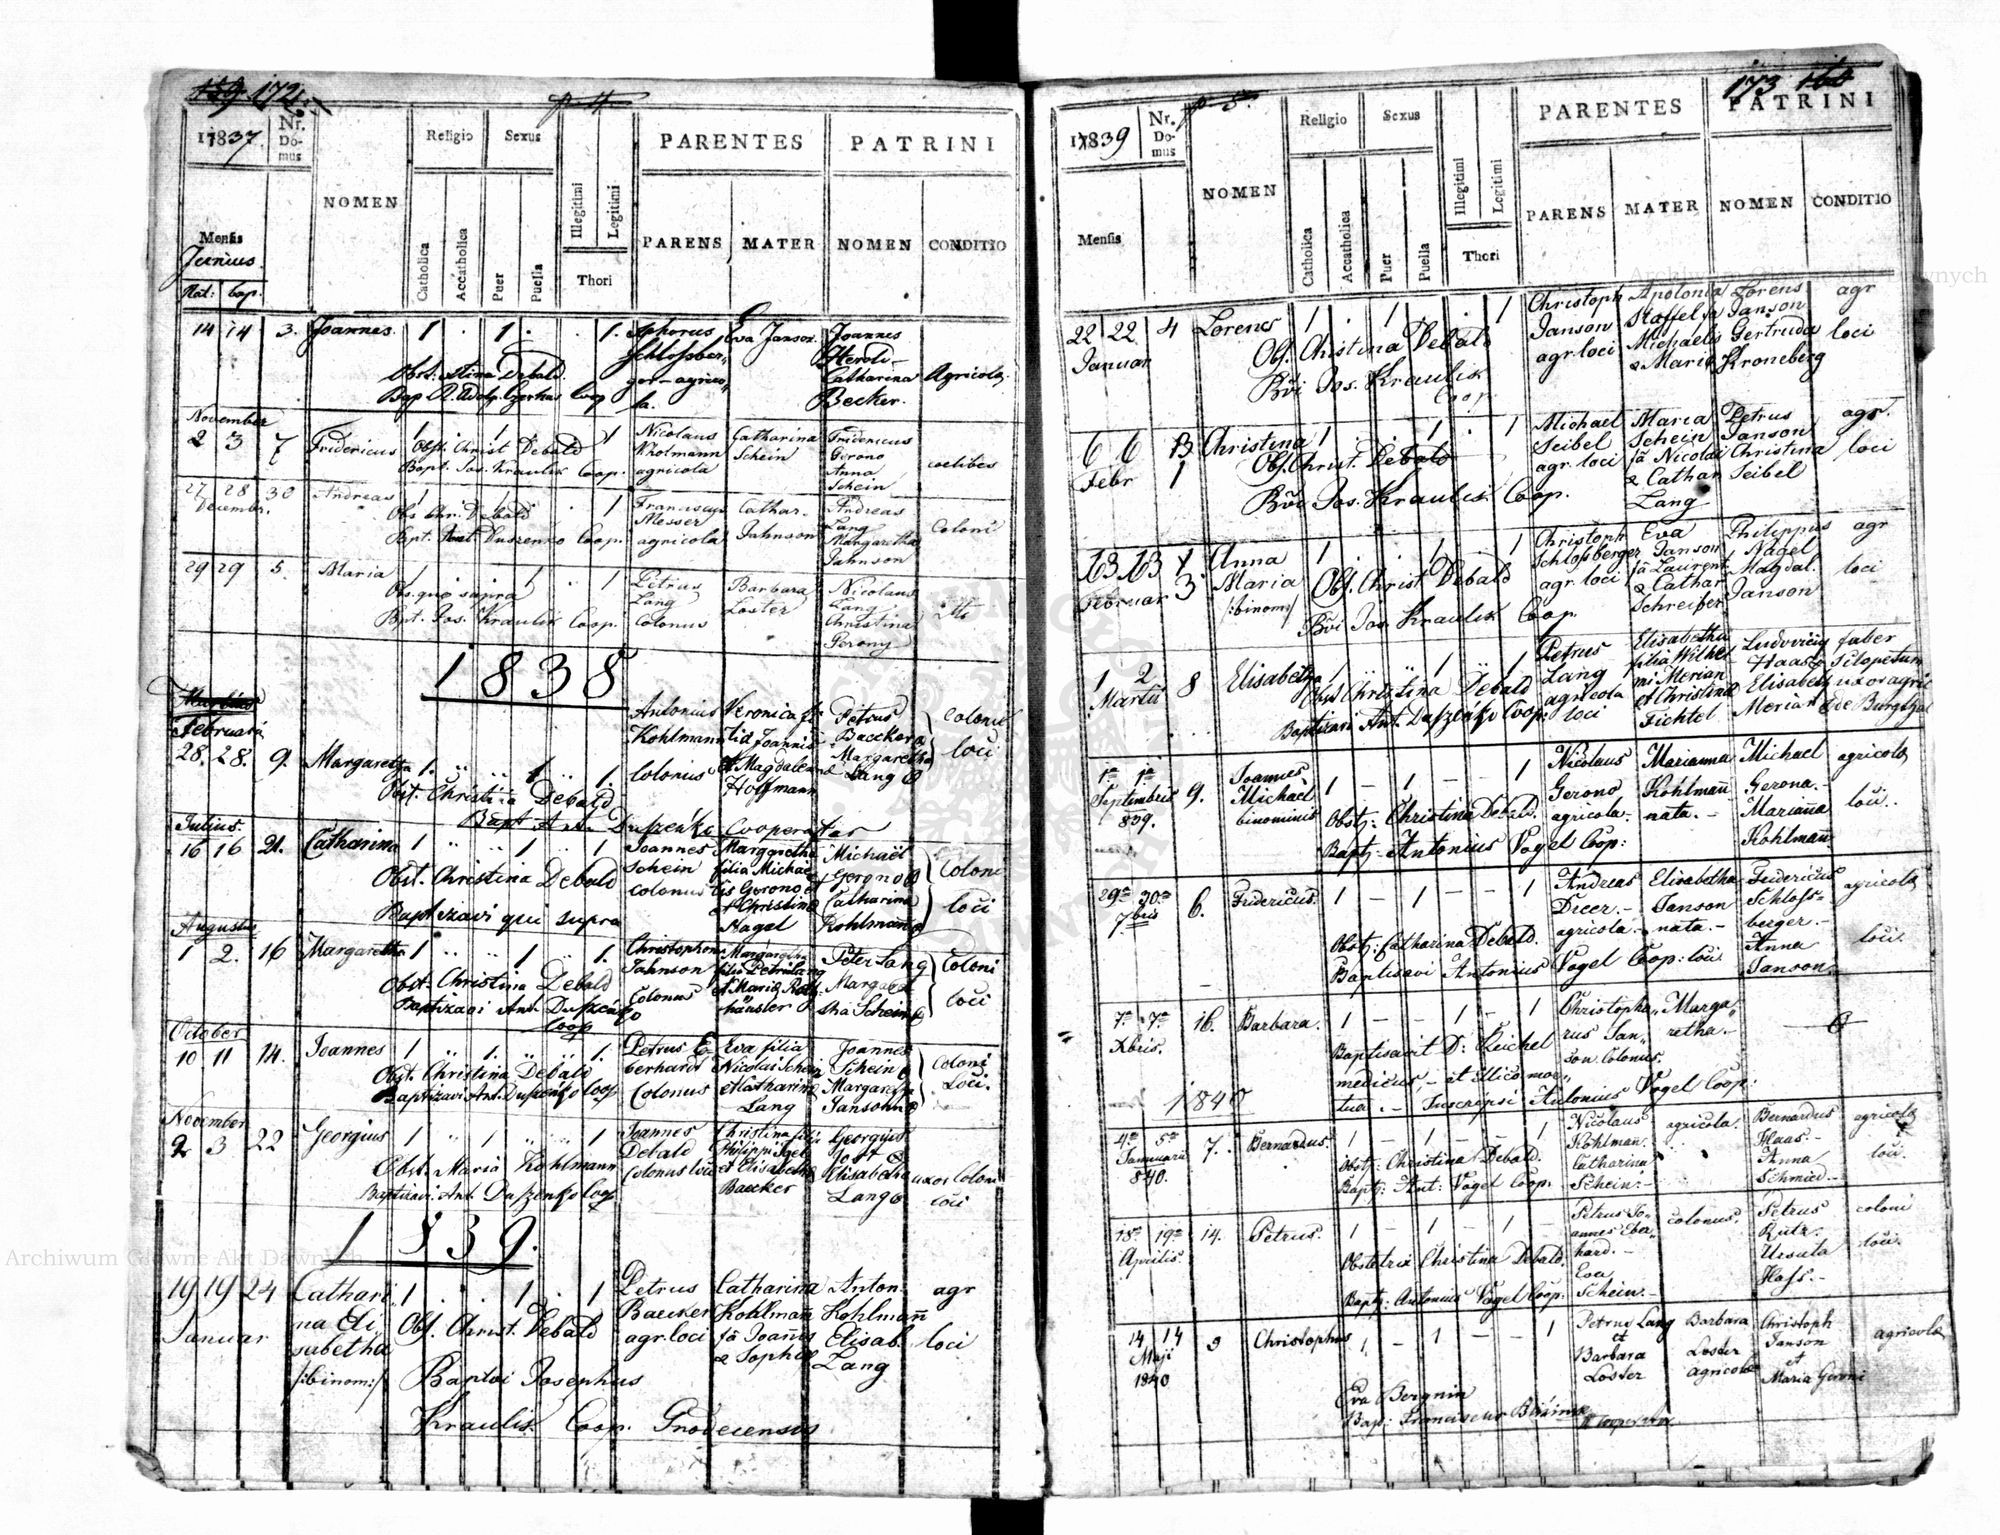 159 172.
p 4
17837.
Nr. Domus
NOMEN
Religio
Sexus
PARENTES
PATRINI
Mensis
Junius
Nat: Bap.
Catholica
Accatholica
Puer
Puella
Illegitimi
Legitimi
Thori
PARENS
MATER
NOMEN
CONDITIO
14 14 3. Joannes. 1 . 1 . . 1. Eva Janson Joannes
Schlossber,, Herold
ger - agrico,, Catharina Agricola.
la. Becker.
Obst: Debald.
Bap Coop
November
2 3 7 Fridericus 1 1 1 Nicolaus Catharina Fridericus
Obst. Christ Debald Kholmann Schein Gerono
Bapt. Jos. Kraulik Coop. agricola Anna coelibes
Schein
27 28 30 Andreas 1 1 1 Franciscus Cathar. Andreas
Decembr. Obs Chr. Debald Messer Jahnson Lang Coloni
Bpt. Duszenko Coop. agricola Margaretha
Jahnson
29 29 5. Maria 1 1 1 Petrus Barbara Nicolaus
Obs. quo supra Lang Loster Lang
Bpt. Jos. Kraulik Coop. Colonus Christina
Gerony
1838
Februari
28. 28. 9. Margaretha 1. 1 1. Antonius Veronica fi Petrus Coloni
Kohlmann lia Joannis Baecker loci
Colonus et Magdalena Margaretha
Hoffmann Lang
Obst. Christina Debald
Bapt Ant. Duszeńko Cooperator
Julius.
16 16 21. Catharina 1 1 1 Joannes Margaretha Michaël Coloni
Obst. Christina Debald Schein filia Michae Gerono loci
Colonus lis Gerono et Catharina
Baptizavi qui supra Christina Kohlmann
Nagel
Augustus
1 2. 16 Margaretha 1 1 1. Christophorus Margaretha Peter Lang Coloni
Obst. Christina Debald Jahnson filia Petri Lang Margare loci
Baptizavi Ant. Duszeńko Colonus et Maria tha Schein
Coop
October
10 11 14. Joannes 1 1. 1. Petrus E Eva filia Joannes Coloni
Obst. Christina Debald berhardt Nicolai Schein Schein Loci.
Baptizavi Ant. Duszeńko Coop Colonus et Catharina Margaretha
Lang Jansohn
November
2 3 22 Georgius 1 1 1 Joannes Christina filia Georgius
Obst. Maria Kohlmann Debald Philippi Igel
Baptizavi Ant. Duszeńko Coop Colonus loci et Elisabetha Elisabetha uxor Coloni
Baecker Lang loci
1839.
19 19 24 Cathari 1 . . 1 . 1 Petrus Catharina Anton. agr
Januar na Eli Baecker Kohlmañ Kohlmañ
sabetha Obs. Christ. Debald agr. loci fa Joañis Elisab. loci
/:binom:/ & Sophia Lang
Baptvi Josephus
Kraulik Coop. Gnodecensis
173 164
p 5.
17839
Nr. Domus
NOMEN
Religio
Sexus
PARENTES
PATRINI
Mensis
Catholica
Accatholica
Puer
Puella
Illegitimi
Legitimi
Thori
PARENS
MATER
NOMEN
CONDITIO
22 22 4 Lorenc 1 . 1 . . 1 Christoph Apolonia Lorens agr
Januar Obs. Christina Debald Janson Staffel fa Janson
Bvi Jos. Kraulik agr loci Michaelis Gertruda loci
Coop & Maria Kroneberg
6 6 13 Christina 1 . . 1 . 1 Michael Maria Petrus agr.
Febr 1 Obs. Christ. Debald Seibel Schein Janson
Bvi Jos. Kraulik Coop. agr. loci fa Nicolai Christina loci
& Cathar Seibel
Lang
13. 13 1 Anna 1 . . 1 . 1 Christoph Eva Philippus agr
Februar 3 Maria Obs. Christ Debald Schlossberger Janson Nagel
/:binom:/ agr. loci fa Laurent Magdal. loci
Bvi Jos. Kraulik Coop. & Cathar Janson
Schreiber
1 2 8 Elisabetha 1 1 1 Petrus Elisabetha Ludovicus faber
Martii Obst Christina Debald Lang filia Wilhel Haas Sclopetum
Baptizavi Ant. Duszeńko Coop: agricola mi Merian Elisabeth uxor agric
loci et Christina Merian de Burgthal
Fichtel
1a 1a 9. Joannes 1 - 1 - - 1 Nicolaus Marianna Michael agricola
Septembris Michael Gerono Kohlmañ Gerona.
839. binominis Obstz: Christina Debald. agricola. nata. Mariana loci.
Baptz: Antonius Vogel Coop: Kohlman
29a 30a 6. Fridericus. 1 - 1 - - 1 Andreas Elisabetha Fridericus agricola
7bris Dreer. Janson Schloss=
Obstz: Catharina Debald. agricola nata. berger. loci.
Baptisavi Antonius Vogel Coop: loci Anna
Janson.
7a 7a 16. Barbara. 1 - - 1 - 1 Christopho,, Marga,,
Xbris. rus Jan,, retha.
Baptisavit D: Reichel son. Colonus.
medicus, - et illico mor,,
tua. - Inscripsi Antonius Vogel Coop:
1840
4a 5a 7. Bernardus. 1 - 1 - - 1 Nicolaus agricola. Bernardus agricola
Januarii Obstz: Christina Debald. Kohlman. Haas. loci.
840. Baptz: Ant: Vogel Coop. Catharina Anna
Schein. Schmied.
18a 19a 14. Petrus. 1 - 1 - 1 - Petrus Jo= colonus. Petrus coloni
Aprilis. Obstetrix Christina Debald. annes Eber= Rutz. loci.
hard. Ursula
Baptz: Antonius Vogel Coop: Eva Hass.
Schein.
14 14 3 Christophus 1 - 1 - - 1 Petrus Lang Barbara Christoph agricola
Maji et Loster Janson
1840 Barbara agricola et
Loster Maria Geroni
Eva Bergnin
Bap: Franciscus Cooperator
Archiwum Główne Akt Dawnych
Archiwum Główne Akt Dawnych